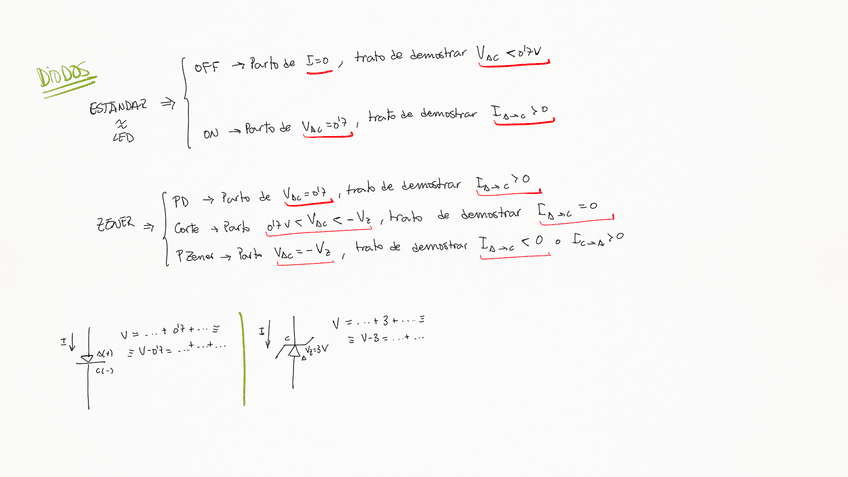 DIODOS
OFF → Parto de I=0, trato de demostrar V_AC < 0'7V
ESTÁNDAR ⇒
≈
LED
ON → Parto de V_AC=0'7, trato de demostrar I_A→C > 0
PD → Parto de V_AC=0'7, trato de demostrar I_A→C > 0
ZENER ⇒
Corte → Parto 0'7V < V_AC < -V_Z, trato de demostrar I_A→C = 0
PZener → Parto V_AC = -V_Z, trato de demostrar I_A→C < 0 o I_C→A > 0
I↓
V = ... + 0'7 + ... ≡
≡ V-0'7 = ...+...+...
A(+)
C(-)
I↓
C
A
V_Z=3V
V = ... + 3 + ... ≡
≡ V-3 = ...+...